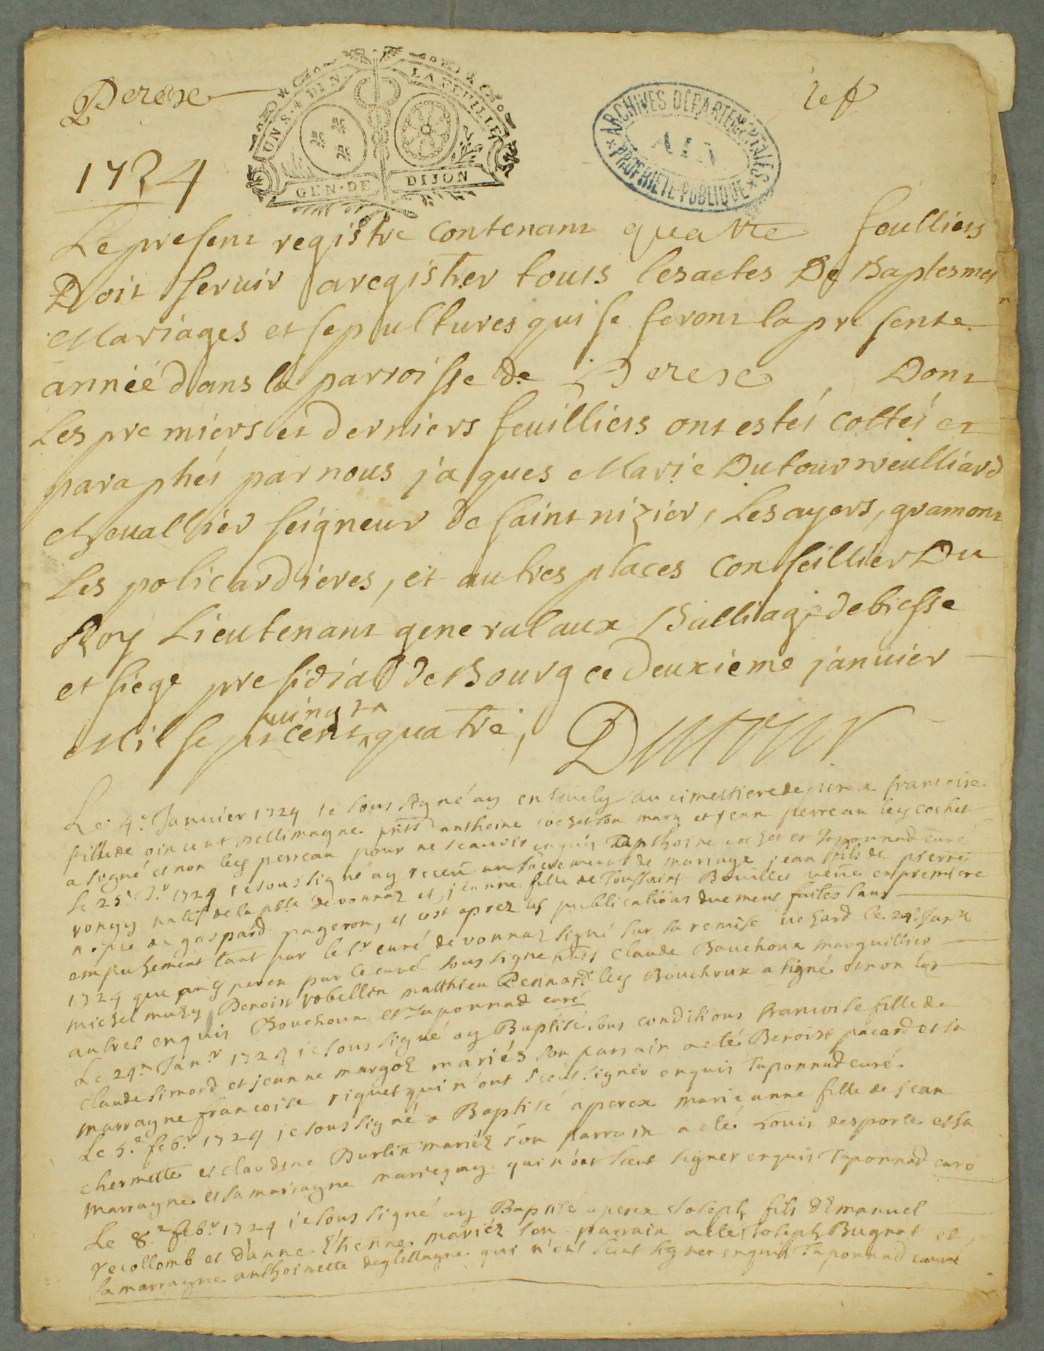 Perexe
1er f
UN S. 4 DEN. LA FEUILLE
GEN. DE DIJON
ARCHIVES DÉPARTEMENTALES
AIN
PROPRIÉTÉ PUBLIQUE
1724
Le present registre contenant quattre feulliets
Doit servir a registrer touts les actes De Baptesmes
Mariages et sepultures qui se feront la presente
année dans la parroisse de Perexe, Dont
Les premiers et derniers feuilliets ont estéi cottéi et
paraphéi par nous jacques Marie Dutour vuilliard
chevallier seigneur De saint nizier, Lesayers, gramont
Les policardieres, et autres places conseillier Du
Roy Lieutenant general aux Balliage de bresse
et siege presidial de Bourg ce deuxieme janvier
Mil sept cent vingt quatre,
Dutour
Le 4e Janvier 1724 je sous signé ay ensevely au cimestiere de perex francoise
fille de vincent pellimagne pnts anthoine cochet son mary et jean perreau ley cochet
a signé et non ley perreau pour ne scavoir enquis Taponnad curé
Le 25e Jr 1724 je soussigné ay receu au sacrement de mariage jean fils de pierre
natif de la psse de vonnaz et jeanne fille de Toussaint Bouillet veuve en premiere
nopce de gaspard pageron, et cest aprez les publications duement faites sans
empechement tant par le sr curé de vonnaz signé sur la remise le 24e Janr
1724 que par le curé soussigné pnts claude Bouchoux marguillier
michel muzy Benoist robellin matthieu Pennard ley Bouchoux a signé et non les
autres enquis Bouchoux et Taponnad curé
Le 29e Janr 1724 je sous signé ay Baptisé sous conditions francoise fille de
claude simard et jeanne margot mariés son parrain a eté Benoist pacard et sa
marrayne francoise riquet qui n'ont sceut signer enquis Taponnad curé.
Le 5e febr 1724 je sous signé a Baptisé a perex marianne fille de jean
chermette et claudine Burtin mariéz son parrain a eté Louis desporte et sa
marrayne qui n'ont sceut signer enquis Taponnad curé
Le 8e febr 1724 je sous signé ay Baptisé a perex Joseph fils d'Emanuel
recollomb et d'anne Ethenne mariéz son parrain a eté joseph Bugnot et
sa marrayne anthoinette qui n'ont sceut signer enquis Taponnad curé